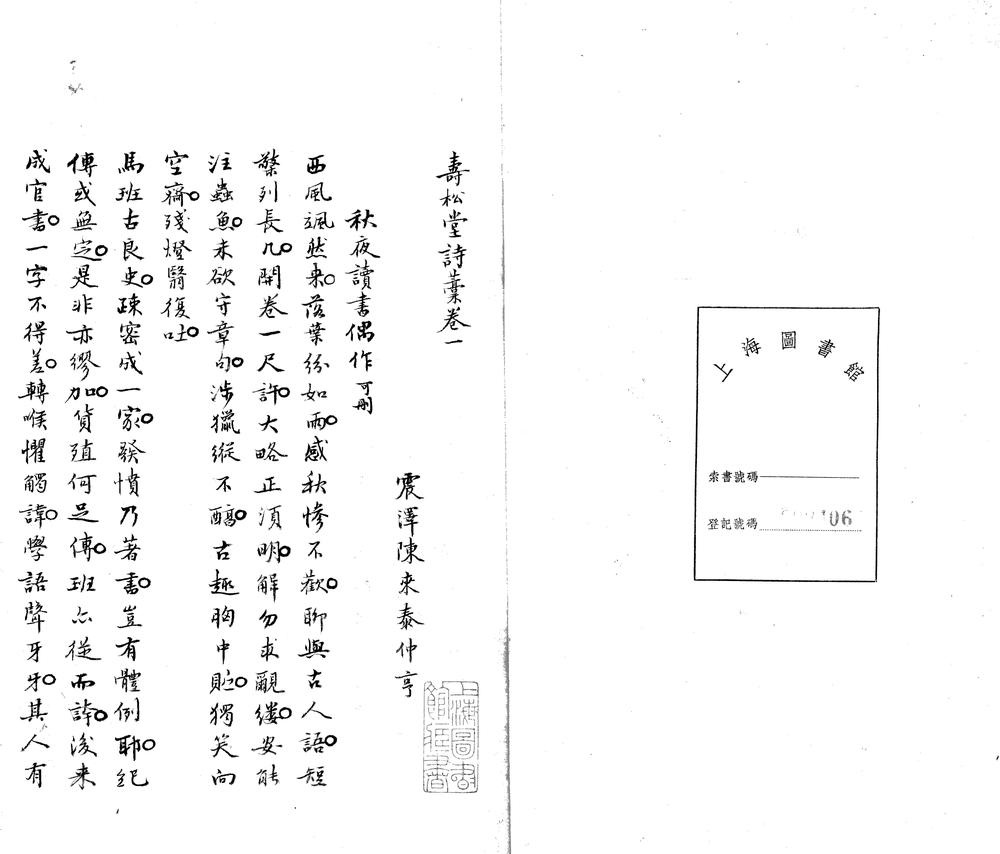 上海圖書館
索書號碼
登記號碼 06
壽松堂詩藁卷一
震澤陳來泰仲亨
秋夜讀書偶作 可刪
西風颯然來。落葉紛如雨。感秋慘不歡。聊與古人語。短
檠列長几。開卷一尺許。大略正須明。解勿求覼縷。安能
注蟲魚。未欲守章句。涉獵縱不醇。古趣胸中貯。獨笑向
空齋。殘燈翳復吐。
馬班古良史。疎密成一家。發憤乃著書。豈有體例耶。紀
傳或無定。是非亦繆加。貨殖何足傳。班亦從而譁。後来
成官書。一字不得差。轉喉懼觸諱。學語聱牙牙。其人有
上海圖書館藏書